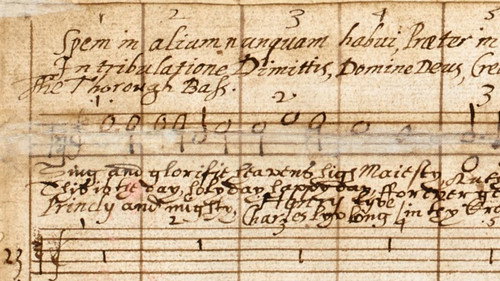 1 2 3 4 5
Spem in alium nunquam habui, Præter in
In tribulatione Dimittis, Domine Deus, Cre
The Thorough Bass.
1 2 3
Sing and glorifie heavens high Maiesty,
This is the day, holy day happy day, for ever
Princly and mighty, Henry live
Charles lyve long, in thy
1 2 3 4
23